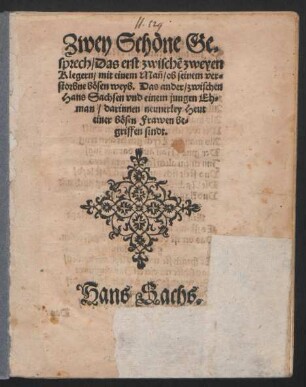 II. 529
Zwey Schöne Ge⸗
sprech/ Das erst zwischẽ zweyen
Klegern/ mit einem Mañ/ ob seinem ver⸗
storbne bösen weyb. Das ander/ zwischen
Hans Sachsen vnd einem jungen Eh⸗
man/ darinnen neunerley Heut
einer bösen Frawen be⸗
griffen sindt.
Hans Sachs.